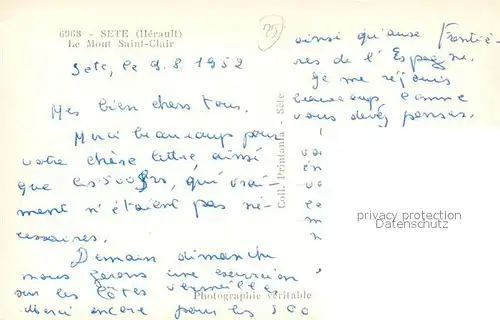 6968 - SETE (Hérault)
Le Mont Saint-Clair
75
Sete, le 9.8.1952
Mes bien chers tous,
Merci beaucoup pour
votre chère lettre, ainsi
que les 500 frs, qui vrai-
ment n'étaient pas né-
cessaires.
Demain dimanche
nous ferons une excursion
sur les Côtes vermeilles,
Merci encore pour les 500
ainsi qu'aux Frontiè-
res de l'Espagne.
Je me réjouis
beaucoup comme
vous devez penser.
Coll. Printania - Sète
Photographie véritable
privacy protection
Datenschutz